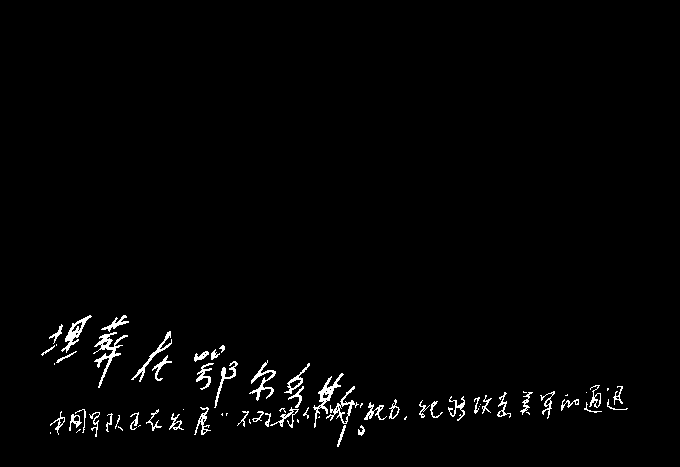 埋葬在鄂尔多斯。
中国军队正在发展“不对称作战”能力,能够改击美军的通迅